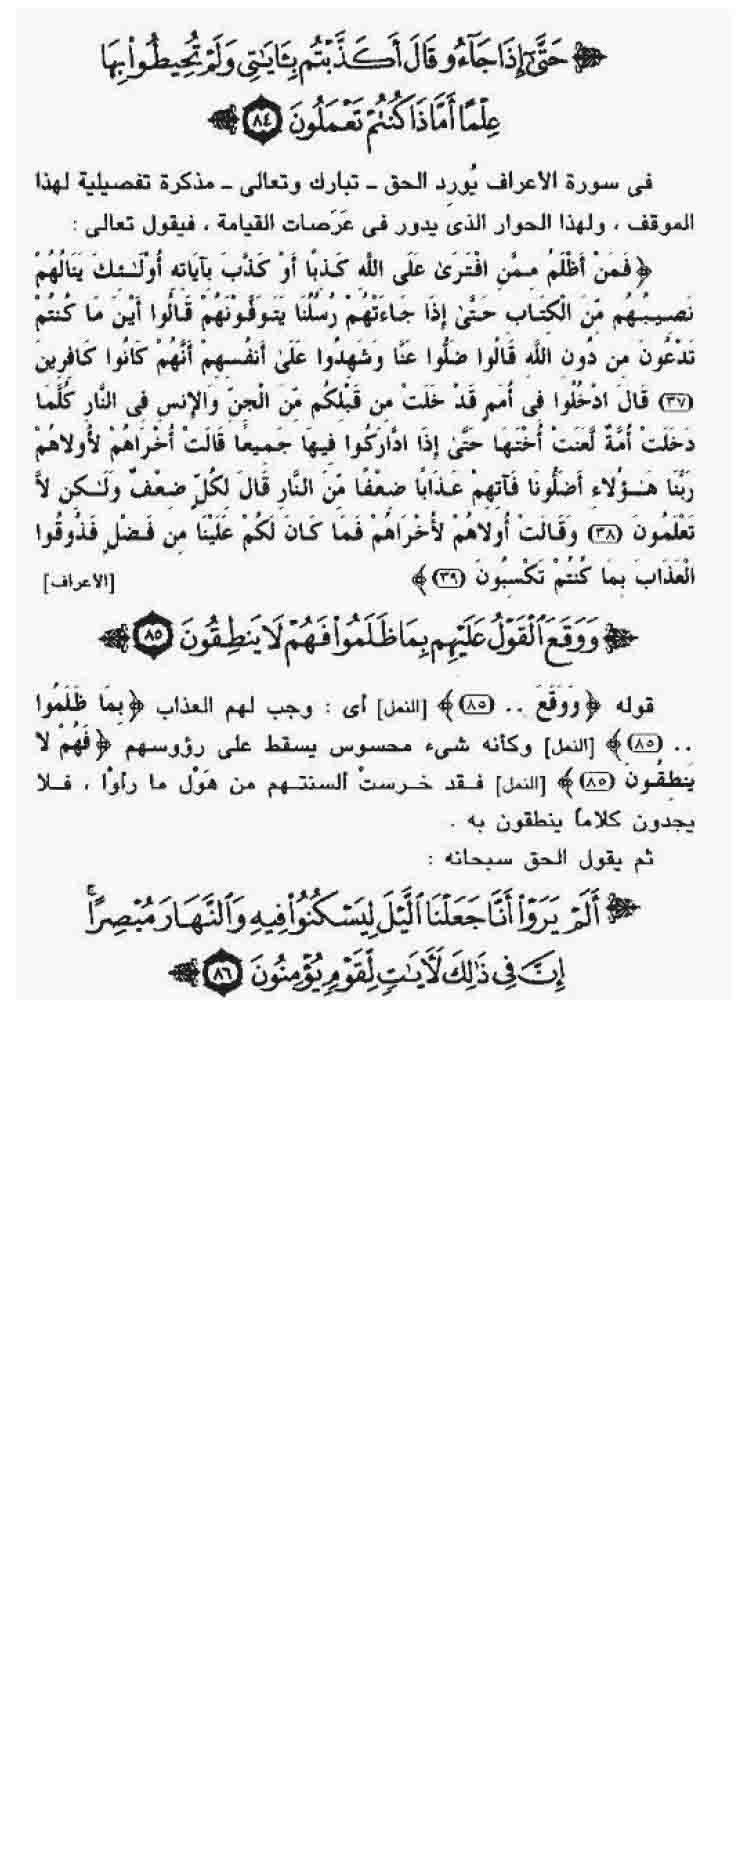 ﴿ حَتَّىٰٓ إِذَا جَآءُو قَالَ أَكَذَّبْتُم بِـَٔايَـٰتِى وَلَمْ تُحِيطُوا۟ بِهَا
عِلْمًا أَمَّاذَا كُنتُمْ تَعْمَلُونَ ٨٤ ﴾
فى سورة الأعراف يُورِد الحق - تبارك وتعالى - مذكرة تفصيلية لهذا
الموقف ، ولهذا الحوار الذى يدور فى عَرَصات القيامة ، فيقول تعالى :
﴿ فَمَنْ أَظْلَمُ مِمَّنِ افْتَرَىٰ عَلَى اللَّهِ كَذِبًا أَوْ كَذَّبَ بِآيَاتِهِ أُوْلَـٰئِكَ يَنَالُهُمْ
نَصِيبُهُم مِّنَ الْكِتَابِ حَتَّىٰ إِذَا جَاءَتْهُمْ رُسُلُنَا يَتَوَفَّوْنَهُمْ قَالُوا أَيْنَ مَا كُنتُمْ
تَدْعُونَ مِن دُونِ اللَّهِ قَالُوا ضَلُّوا عَنَّا وَشَهِدُوا عَلَىٰ أَنفُسِهِمْ أَنَّهُمْ كَانُوا كَافِرِينَ
(٣٧) قَالَ ادْخُلُوا فِى أُمَمٍ قَدْ خَلَتْ مِن قَبْلِكُم مِّنَ الْجِنِّ وَالإِنسِ فِى النَّارِ كُلَّمَا
دَخَلَتْ أُمَّةٌ لَّعَنَتْ أُخْتَهَا حَتَّىٰ إِذَا ادَّارَكُوا فِيهَا جَمِيعًا قَالَتْ أُخْرَاهُمْ لأُولاهُمْ
رَبَّنَا هَـٰؤُلاءِ أَضَلُّونَا فَآتِهِمْ عَذَابًا ضِعْفًا مِّنَ النَّارِ قَالَ لِكُلٍّ ضِعْفٌ وَلَـٰكِن لاَّ
تَعْلَمُونَ (٣٨) وَقَالَتْ أُولاهُمْ لأُخْرَاهُمْ فَمَا كَانَ لَكُمْ عَلَيْنَا مِن فَضْلٍ فَذُوقُوا
الْعَذَابَ بِمَا كُنتُمْ تَكْسِبُونَ (٣٩) ﴾ [الأعراف]
﴿ وَوَقَعَ ٱلْقَوْلُ عَلَيْهِم بِمَا ظَلَمُوا۟ فَهُمْ لَا يَنطِقُونَ ٨٥ ﴾
قوله ﴿ وَوَقَعَ .. (٨٥) ﴾ [النمل] أى : وجب لهم العذاب ﴿ بِمَا ظَلَمُوا
.. (٨٥) ﴾ [النمل] وكأنه شىء محسوس يسقط على رؤوسهم ﴿ فَهُمْ لا
يَنطِقُونَ (٨٥) ﴾ [النمل] فقد خرستْ ألسنتهم من هَوْل ما رأوْا ، فلا
يجدون كلاماً ينطقون به .
ثم يقول الحق سبحانه :
﴿ أَلَمْ يَرَوْا۟ أَنَّا جَعَلْنَا ٱلَّيْلَ لِيَسْكُنُوا۟ فِيهِ وَٱلنَّهَارَ مُبْصِرًا ۚ
إِنَّ فِى ذَٰلِكَ لَـَٔايَـٰتٍ لِّقَوْمٍ يُؤْمِنُونَ ٨٦ ﴾